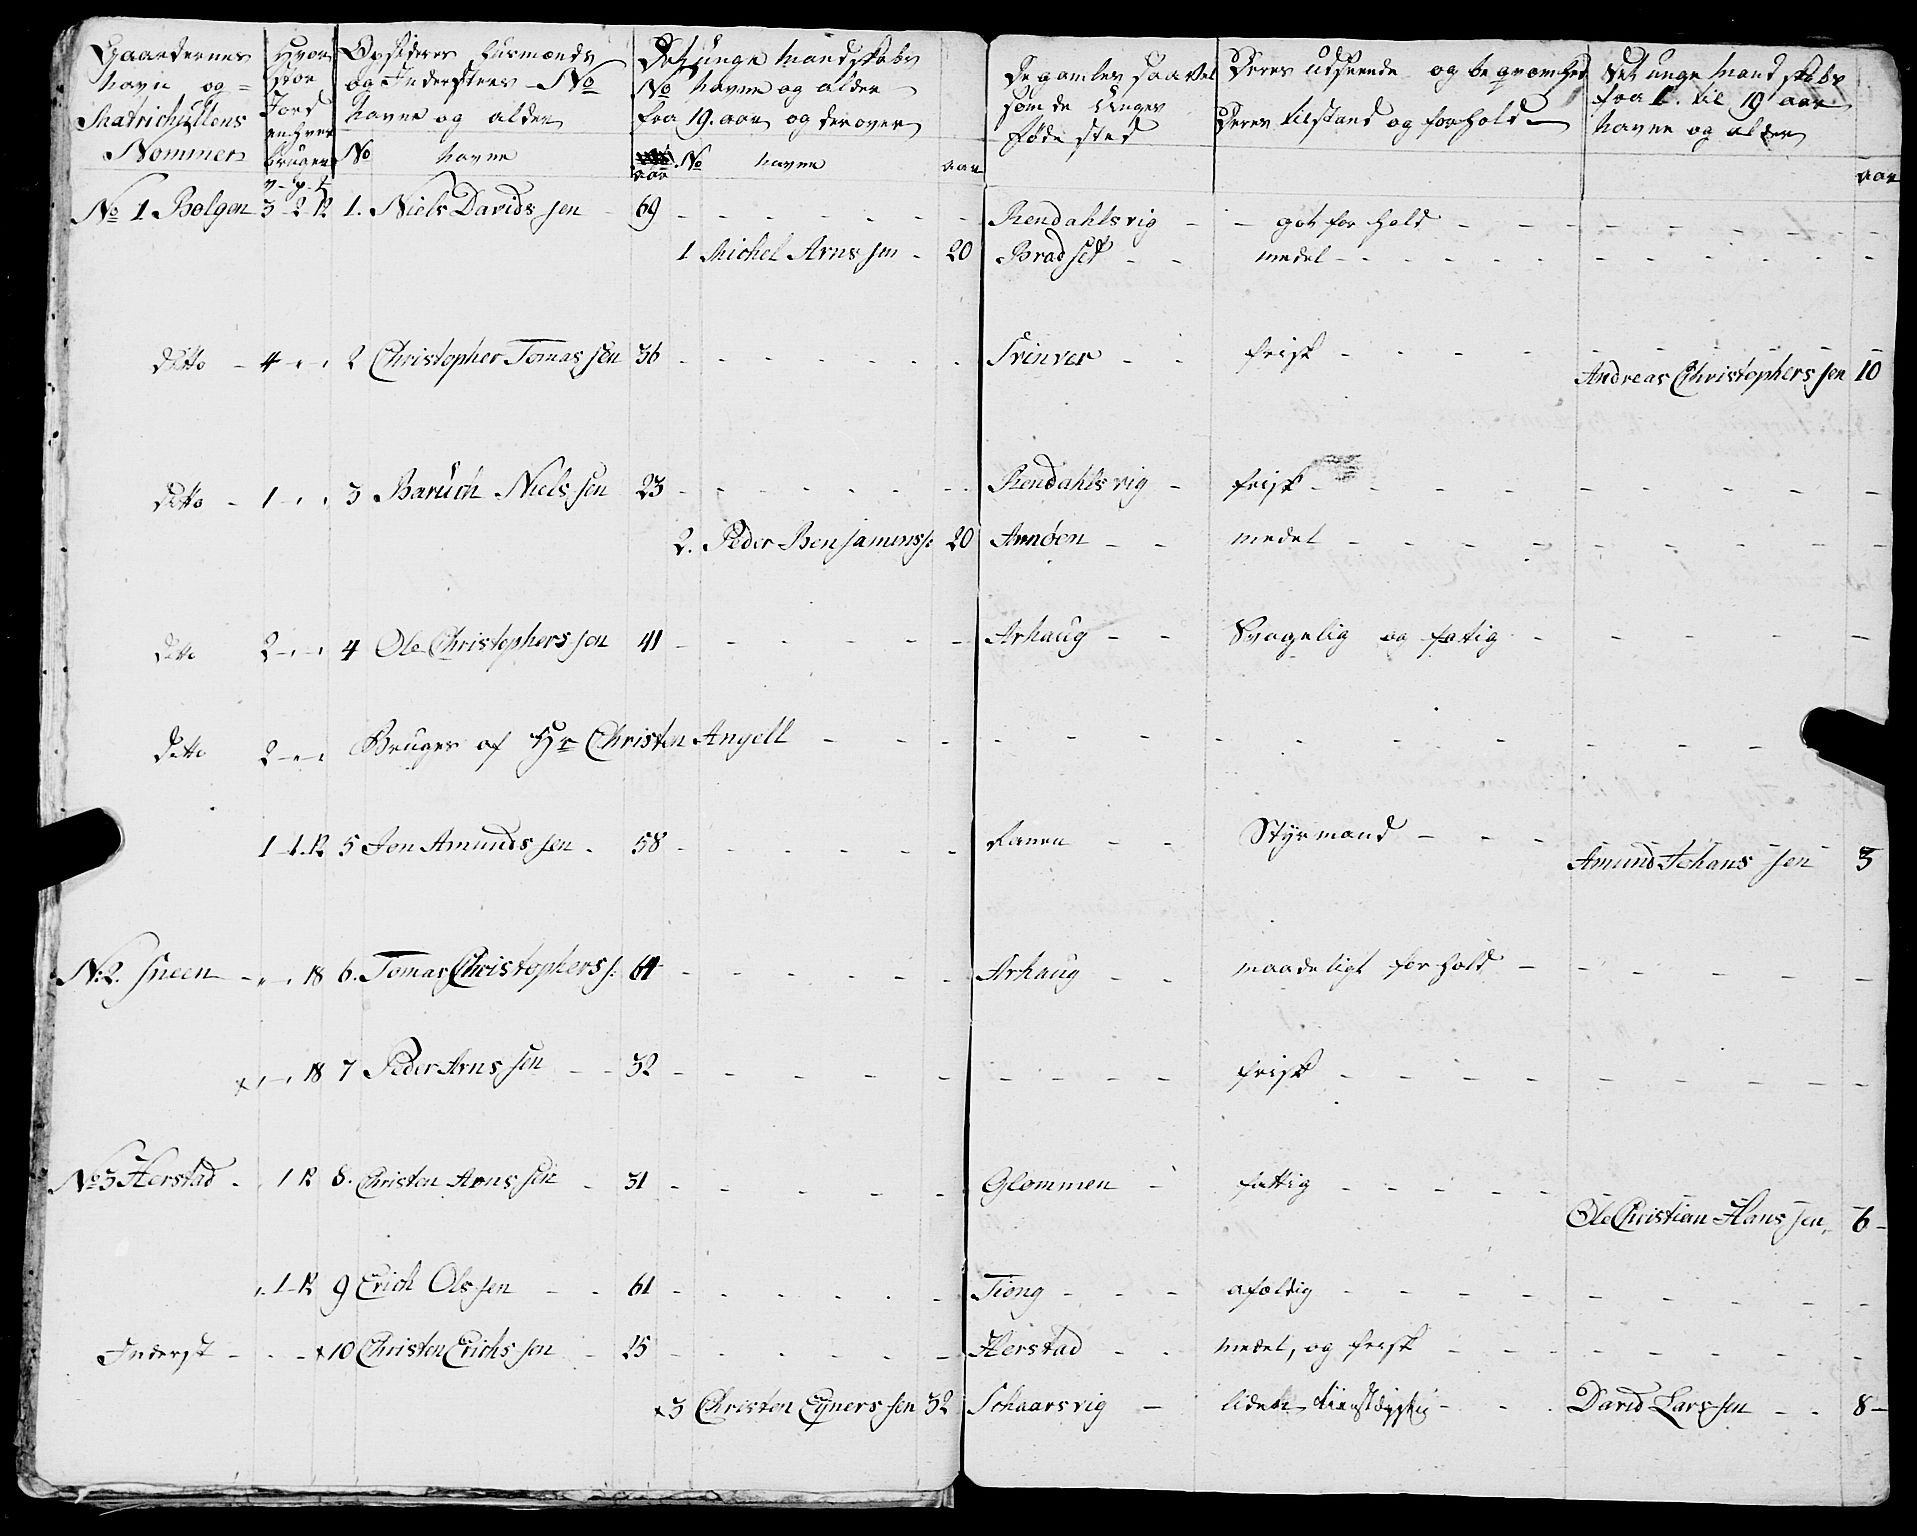 Gaardernes
Navn og
Matrichullens
Nommer
Hvor
stor
Jord
en hver
bruger
v - p - #
Opsideres Husmænds
og Indersters - No
Navne og alder
No Navne
aar
Det unge Mandskabs
No Navne og alder
fra 19. aar og derover
No Navne aar
De gamles saavel
som de Unges
føde sted
Deres udseende og beqvæmhed
Deres tilstand og forhold
Det unge Mandskabs
fra 1. til 19 aar
Navne og alder
aar
No 1 Bolgen 3 - 2. 12 1. Niels Davidssen 69 - Rendahlsvig - got forhold
1 Michel Arnssen - 20 Bradset - medel
ditto - 4 - " - " 2 Christopher Tomassen 36 - Svinvær - frisk
Andreas Christopherssen 10
ditto - 1 - " - " 3 Baruch Nielssen 23 - Rendahlsvig - frisk
2. Peder Benjaminss: 20 Arnøen - medel
ditto 2 - " - " 4 Ole Christopherssen 41 - Arhaug - Svagelig og fatig
ditto 2 - " - " Bruges af Hr Christen Angell
1 - 1. 12 5 Jon Amundssen - 58 - Ranen - Styrmand
Amund Johanssen 3
N: 2. Sneen - " - " 18 6. Tomas Christophers: 64 - Arhaug - maadeligt forhold
x " - " 18 7 Peder Arnssen - 32 - frisk
No 3 Herstad - 1 12 8. Christen Arnssen - 31 - Glommen - fattig
Ole Christian Hanssen 6
" 1 - 12 9 Erich Olssen - 61 - Tiong - afældig
Inderst - x 10 Christen Erichssen - 25 - Herstad - medel, og frisk
x 3 Christen Eynerssen 32 Schaarsvig - liden tienstdygtig - David Larssen - 8